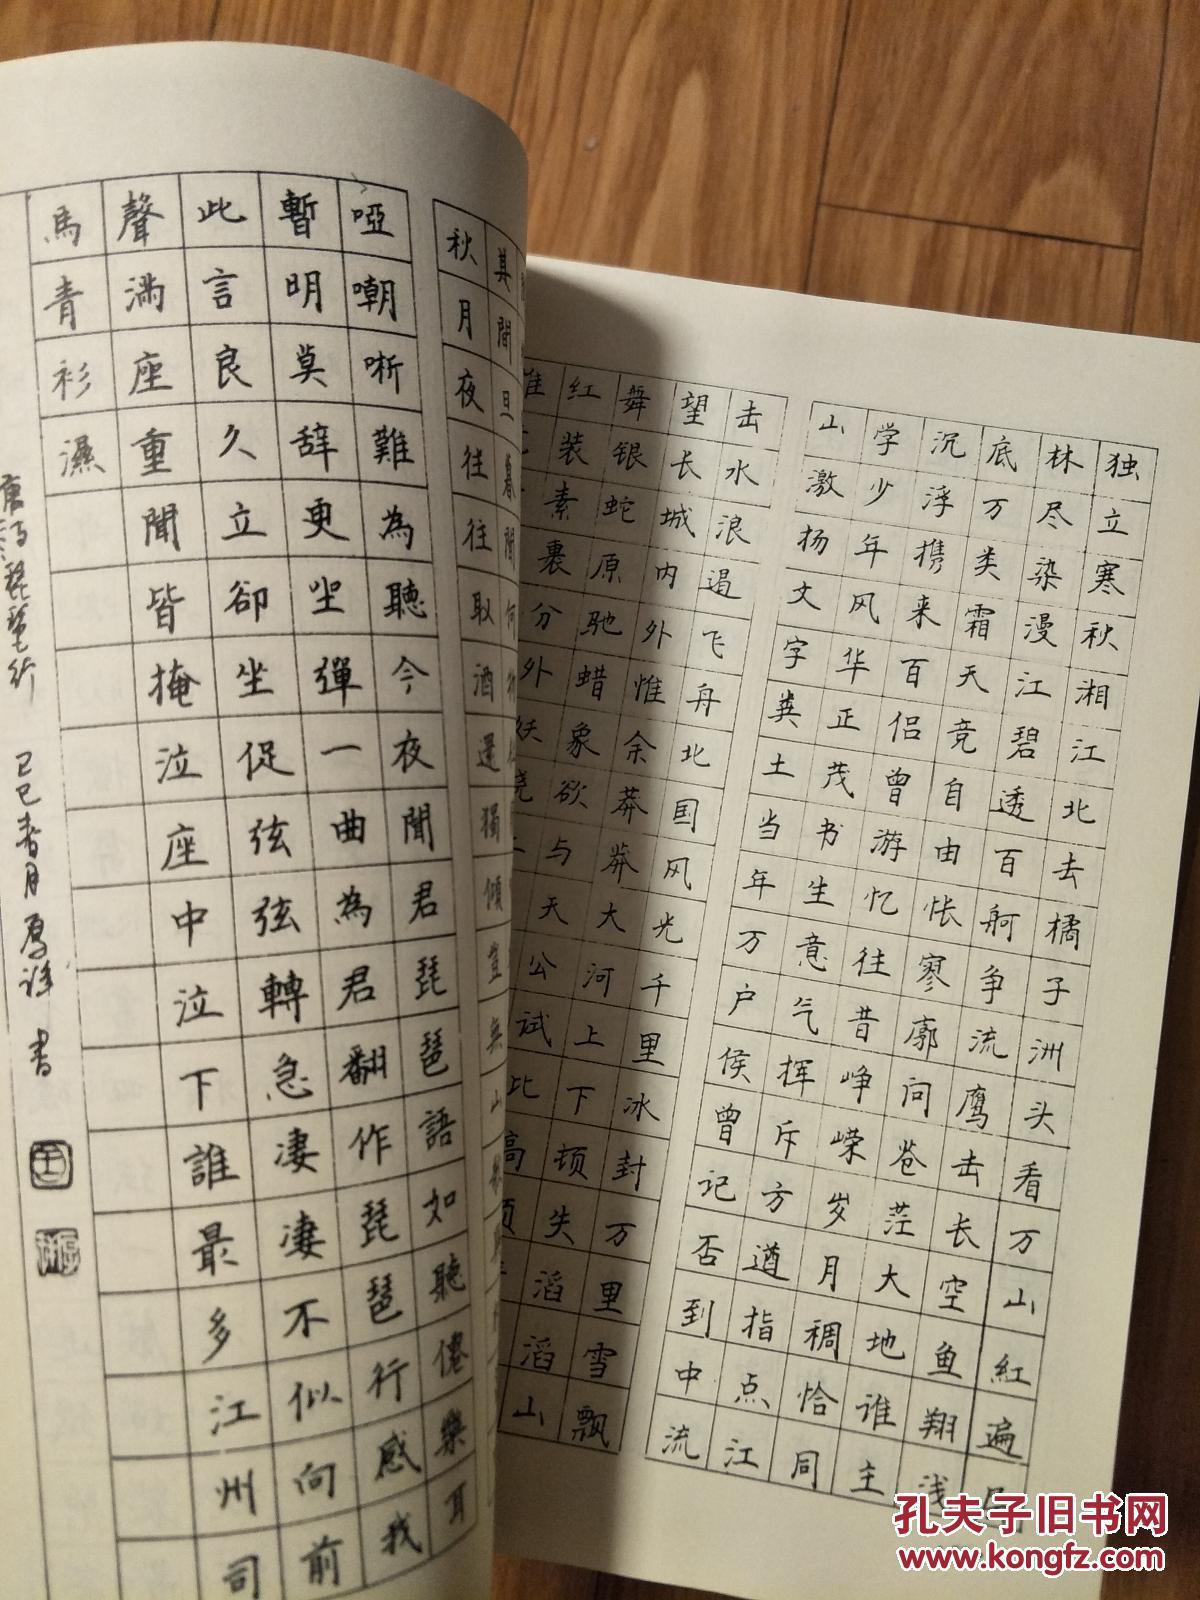 其間旦暮聞何
秋月夜往往取酒還獨傾豈無山歌
啞嘲哳難為聽今夜聞君琵琶語如聽僊樂耳
暫明莫辞更坐彈一曲為君翻作琵琶行感我
此言良久立卻坐促弦弦轉急凄凄不似向前
聲滿座重聞皆掩泣座中泣下誰最多江州司
馬青衫濕
琵琶行 己巳春月 書
独立寒秋湘江北去橘子洲头看万山紅遍层
林尽染漫江碧透百舸争流鹰击长空鱼翔浅
底万类霜天竞自由怅寥廓问苍茫大地谁主
沉浮携来百侣曾游忆往昔峥嵘岁月稠恰同
学少年风华正茂书生意气挥斥方遒指点江
山激扬文字粪土当年万户侯曾记否到中流
击水浪遏飞舟北国风光千里冰封万里雪飘
望长城内外惟余莽莽大河上下顿失滔滔山
舞银蛇原驰蜡象欲与天公试比高须
红装素裹分外妖娆
孔夫子旧书网
www.kongfz.com